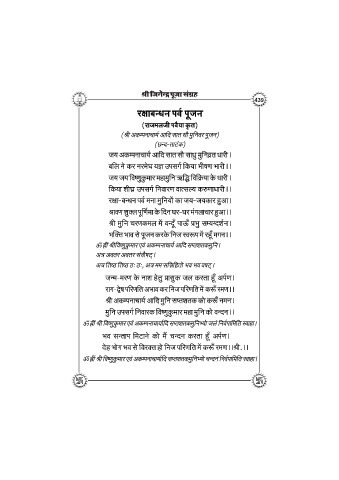 श्री जिनेन्द्र पूजा संग्रह
439
रक्षाबन्धन पर्व पूजन
(राजमलजी पवैया कृत)
(श्री अकम्पनाचार्य आदि सात सौ मुनिवर पूजन)
(छन्द-ताटंक)
जय अकम्पनाचार्य आदि सात सौ साधु मुनिव्रत धारी।
बलि ने कर नरमेघ यज्ञ उपसर्ग किया भीषण भारी।।
जय जय विष्णुकुमार महामुनि ऋद्धि विक्रिया के धारी।
किया शीघ्र उपसर्ग निवारण वात्सल्य करुणाधारी।।
रक्षा-बन्धन पर्व मना मुनियों का जय-जयकार हुआ।
श्रावण शुक्ल पूर्णिमा के दिन घर-घर मंगलाचार हुआ।।
श्री मुनि चरणकमल में वन्दूँ पाऊँ प्रभु सम्यग्दर्शन।
भक्ति भाव से पूजन करके निज स्वरूप में रहूँ मगन।।
ॐ ह्रीं श्रीविष्णुकुमार एवं अकम्पनाचार्य आदि सप्तशतकमुनि।
अत्र अवतर अवतर संवौषट्।
अत्र तिष्ठ तिष्ठ ठः ठः, अत्र मम सन्निहितो भव भव वषट्।
जन्म-मरण के नाश हेतु प्रासुक जल करता हूँ अर्पण।
राग-द्वेष परिणति अभाव कर निज परिणति में करूँ रमण।।
श्री अकम्पनाचार्य आदि मुनि सप्तशतक को करूँ नमन।
मुनि उपसर्ग निवारक विष्णुकुमार महा मुनि को वन्दन।।
ॐ ह्रीं श्री विष्णुकुमार एवं अकम्पनाचार्यादि सप्तशतकमुनिभ्यो जलं निर्वपामिति स्वाहा।
भव सन्ताप मिटाने को मैं चन्दन करता हूँ अर्पण।
देह भोग भव से विरक्त हो निज परिणति में करूँ रमण।।श्री.।।
ॐ ह्रीं श्री विष्णुकुमार एवं अकम्पनाचार्यादि सप्तशतकमुनिभ्यो चन्दनं निर्वपामिति स्वाहा।